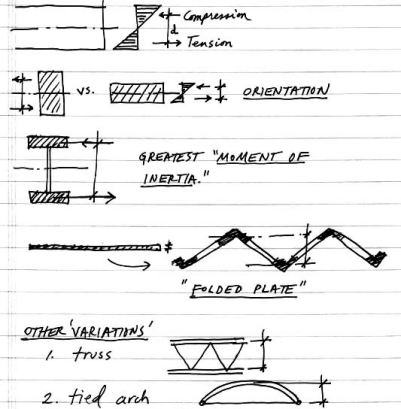 Compression
d
Tension
vs.
ORIENTATION
GREATEST "MOMENT OF
INERTIA."
"FOLDED PLATE"
OTHER 'VARIATIONS'
1. truss
2. tied arch